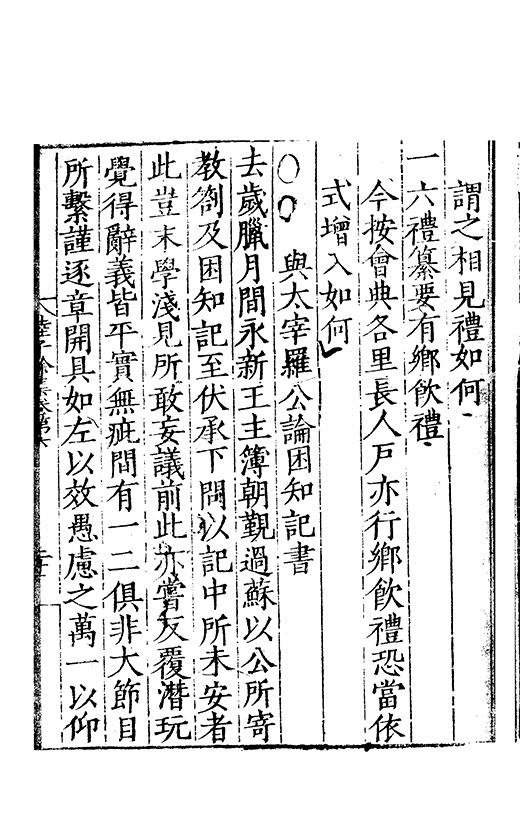 謂之相見禮如何
一六禮纂要有鄉飲禮
今按會典各里長人戶亦行鄉飲禮恐當依
式增入如何
○○與太宰羅公論困知記書
去歲臘月間永新王主簿朝覲過蘇以公所寄
教劄及困知記至伏承下問以記中所未安者
此豈末學淺見所敢妄議前此亦嘗反覆潛玩
覺得辭義皆平實無疵間有一二俱非大節目
所繫謹逐章開具如左以效愚慮之萬一以仰